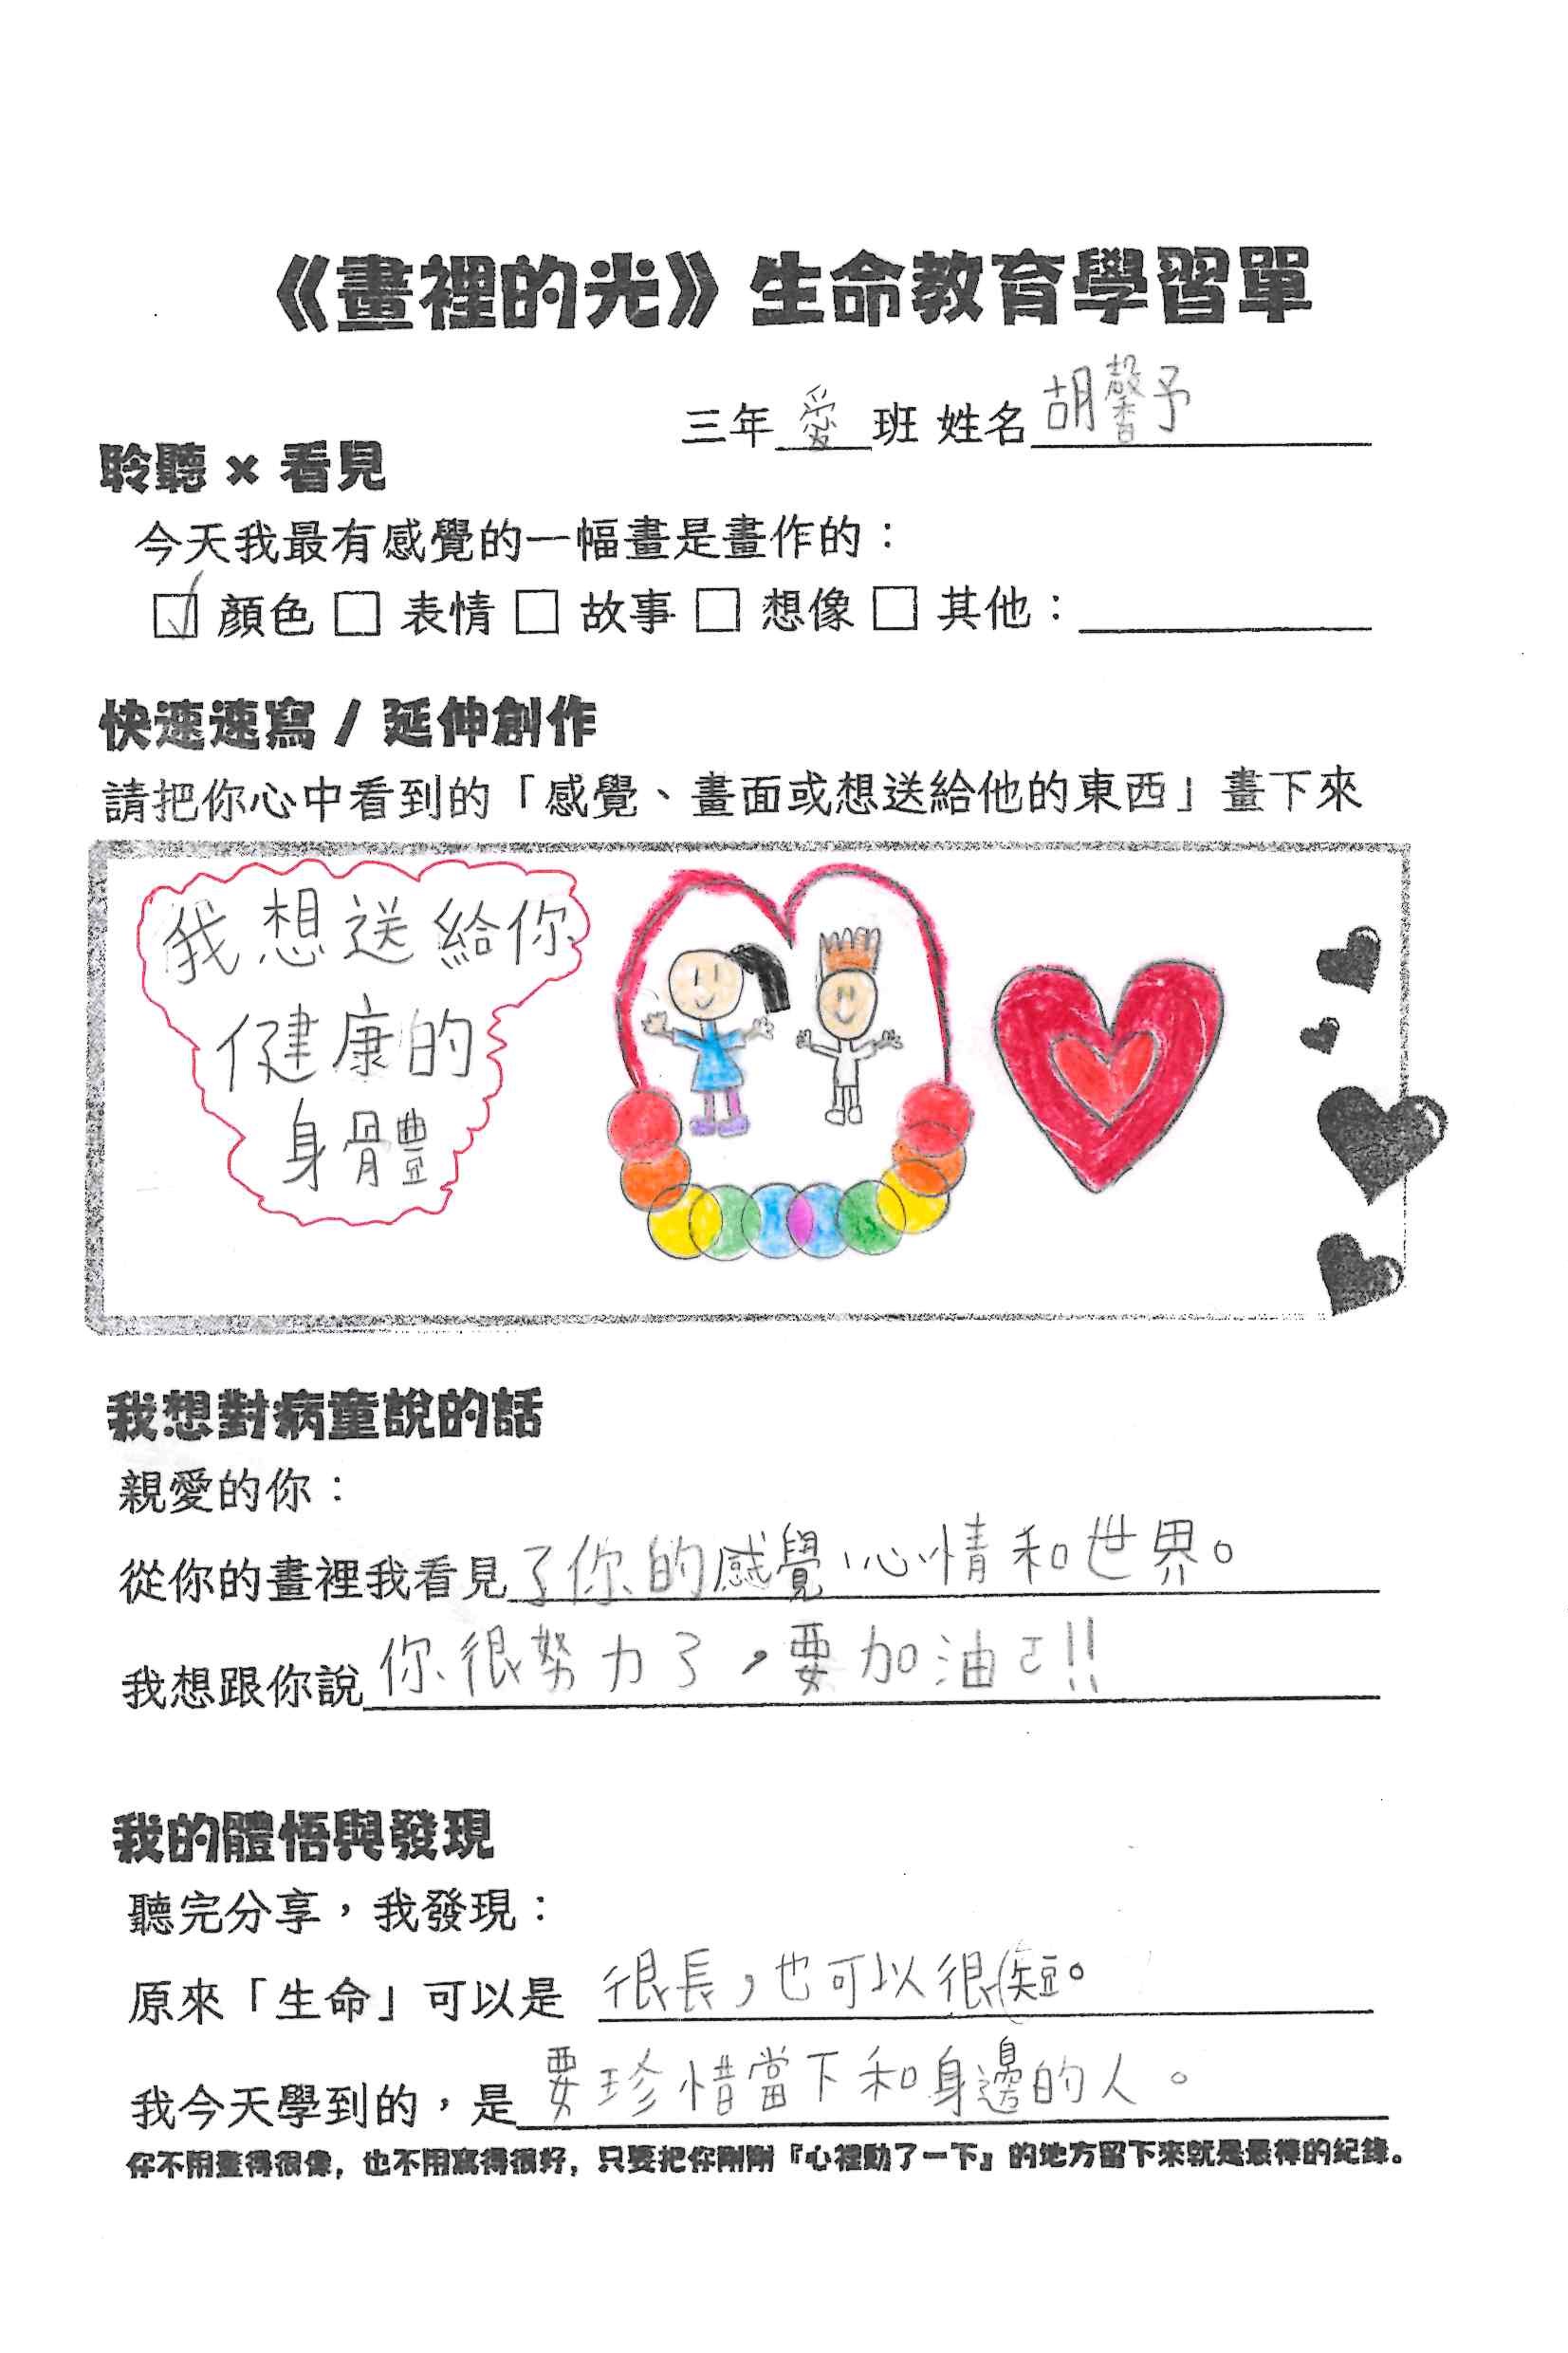 《畫裡的光》生命教育學習單
三年愛班 姓名胡馨予
聆聽 × 看見
今天我最有感覺的一幅畫是畫作的：
☑ 顏色 □ 表情 □ 故事 □ 想像 □ 其他：
快速速寫 / 延伸創作
請把你心中看到的「感覺、畫面或想送給他的東西」畫下來
我想送給你
健康的
身體
我想對病童說的話
親愛的你：
從你的畫裡我看見了你的感覺、心情和世界。
我想跟你說你很努力了，要加油ㄛ!!
我的體悟與發現
聽完分享，我發現：
原來「生命」可以是 很長，也可以很短。
我今天學到的，是要珍惜當下和身邊的人。
你不用畫得很像，也不用寫得很好，只要把你剛剛『心裡動了一下』的地方留下來就是最棒的紀錄。